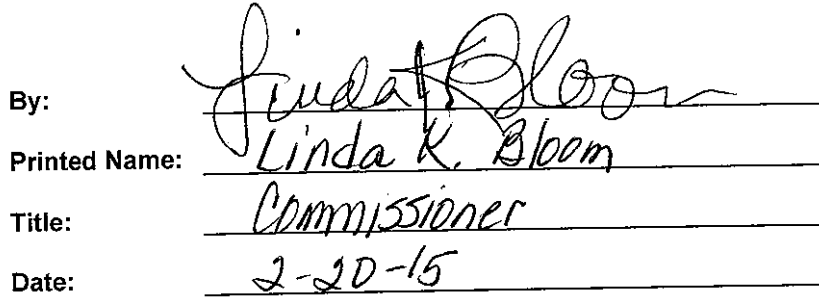 By: Linda K Bloom
Printed Name: Linda K. Bloom
Title: Commissioner
Date: 2-20-15